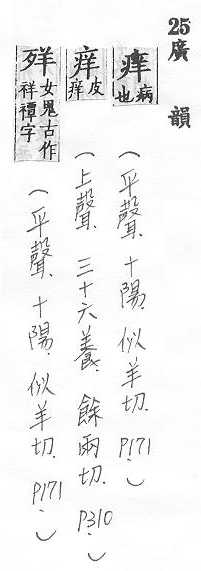 25 廣韻
痒 病也 (平聲、十陽、似羊切、P171.)
痒 皮痒 (上聲、三十六養、餘兩切、P310.)
女鬼古作祥禫字 (平聲、十陽、似羊切、P171.)